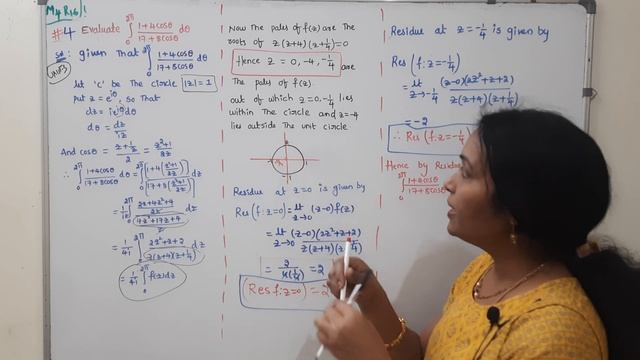 My R16!
#4 Evaluate ∫₀^2π (1+4cosθ)/(17+8cosθ) dθ
Sol: Given that ∫₀^2π (1+4cosθ)/(17+8cosθ) dθ
Let 'C' be the circle |z|=1
put z = e^iθ, so that
dz = ie^iθ dθ
dθ = dz/iz
And cosθ = (z+1/z)/2 = (z²+1)/2z
∴ ∫₀^2π (1+4cosθ)/(17+8cosθ) dθ = ∫₀^2π [1+4(z²+1)/2z]/[17+8(z²+1)/2z] dz
= 1/4i ∫₀^2π (2z²+z+2)/(z(z+4)(z+1/4)) dz
= 1/4i ∫₀^2π f(z)dz
Now the poles of f(z) are the
roots of z(z+4)(z+1/4)=0
Hence z = 0, -4, -1/4 are
the poles of f(z).
out of which z=0,-1/4 lies
within the circle and z=-4
lies outside the unit circle
Residue at z=0 is given by
Res(f:z=0) = lt z→0 (z-0)f(z)
= lt z→0 (z-0)(2z²+z+2)/(z(z+4)(z+1/4)
= 2/(4(1/4)) = 2
(Res f:z=0) = 2
Residue at z=-1/4 is given by
Res(f:z=-1/4)
= lt z→-1/4 (z-0)(2z²+z+2)/(z(z+4)(z+1/4)
= -2
∴ Res(f:z=-1/4)
Hence by Residue
∫₀^2π (1+4cosθ)/(17+8cosθ)